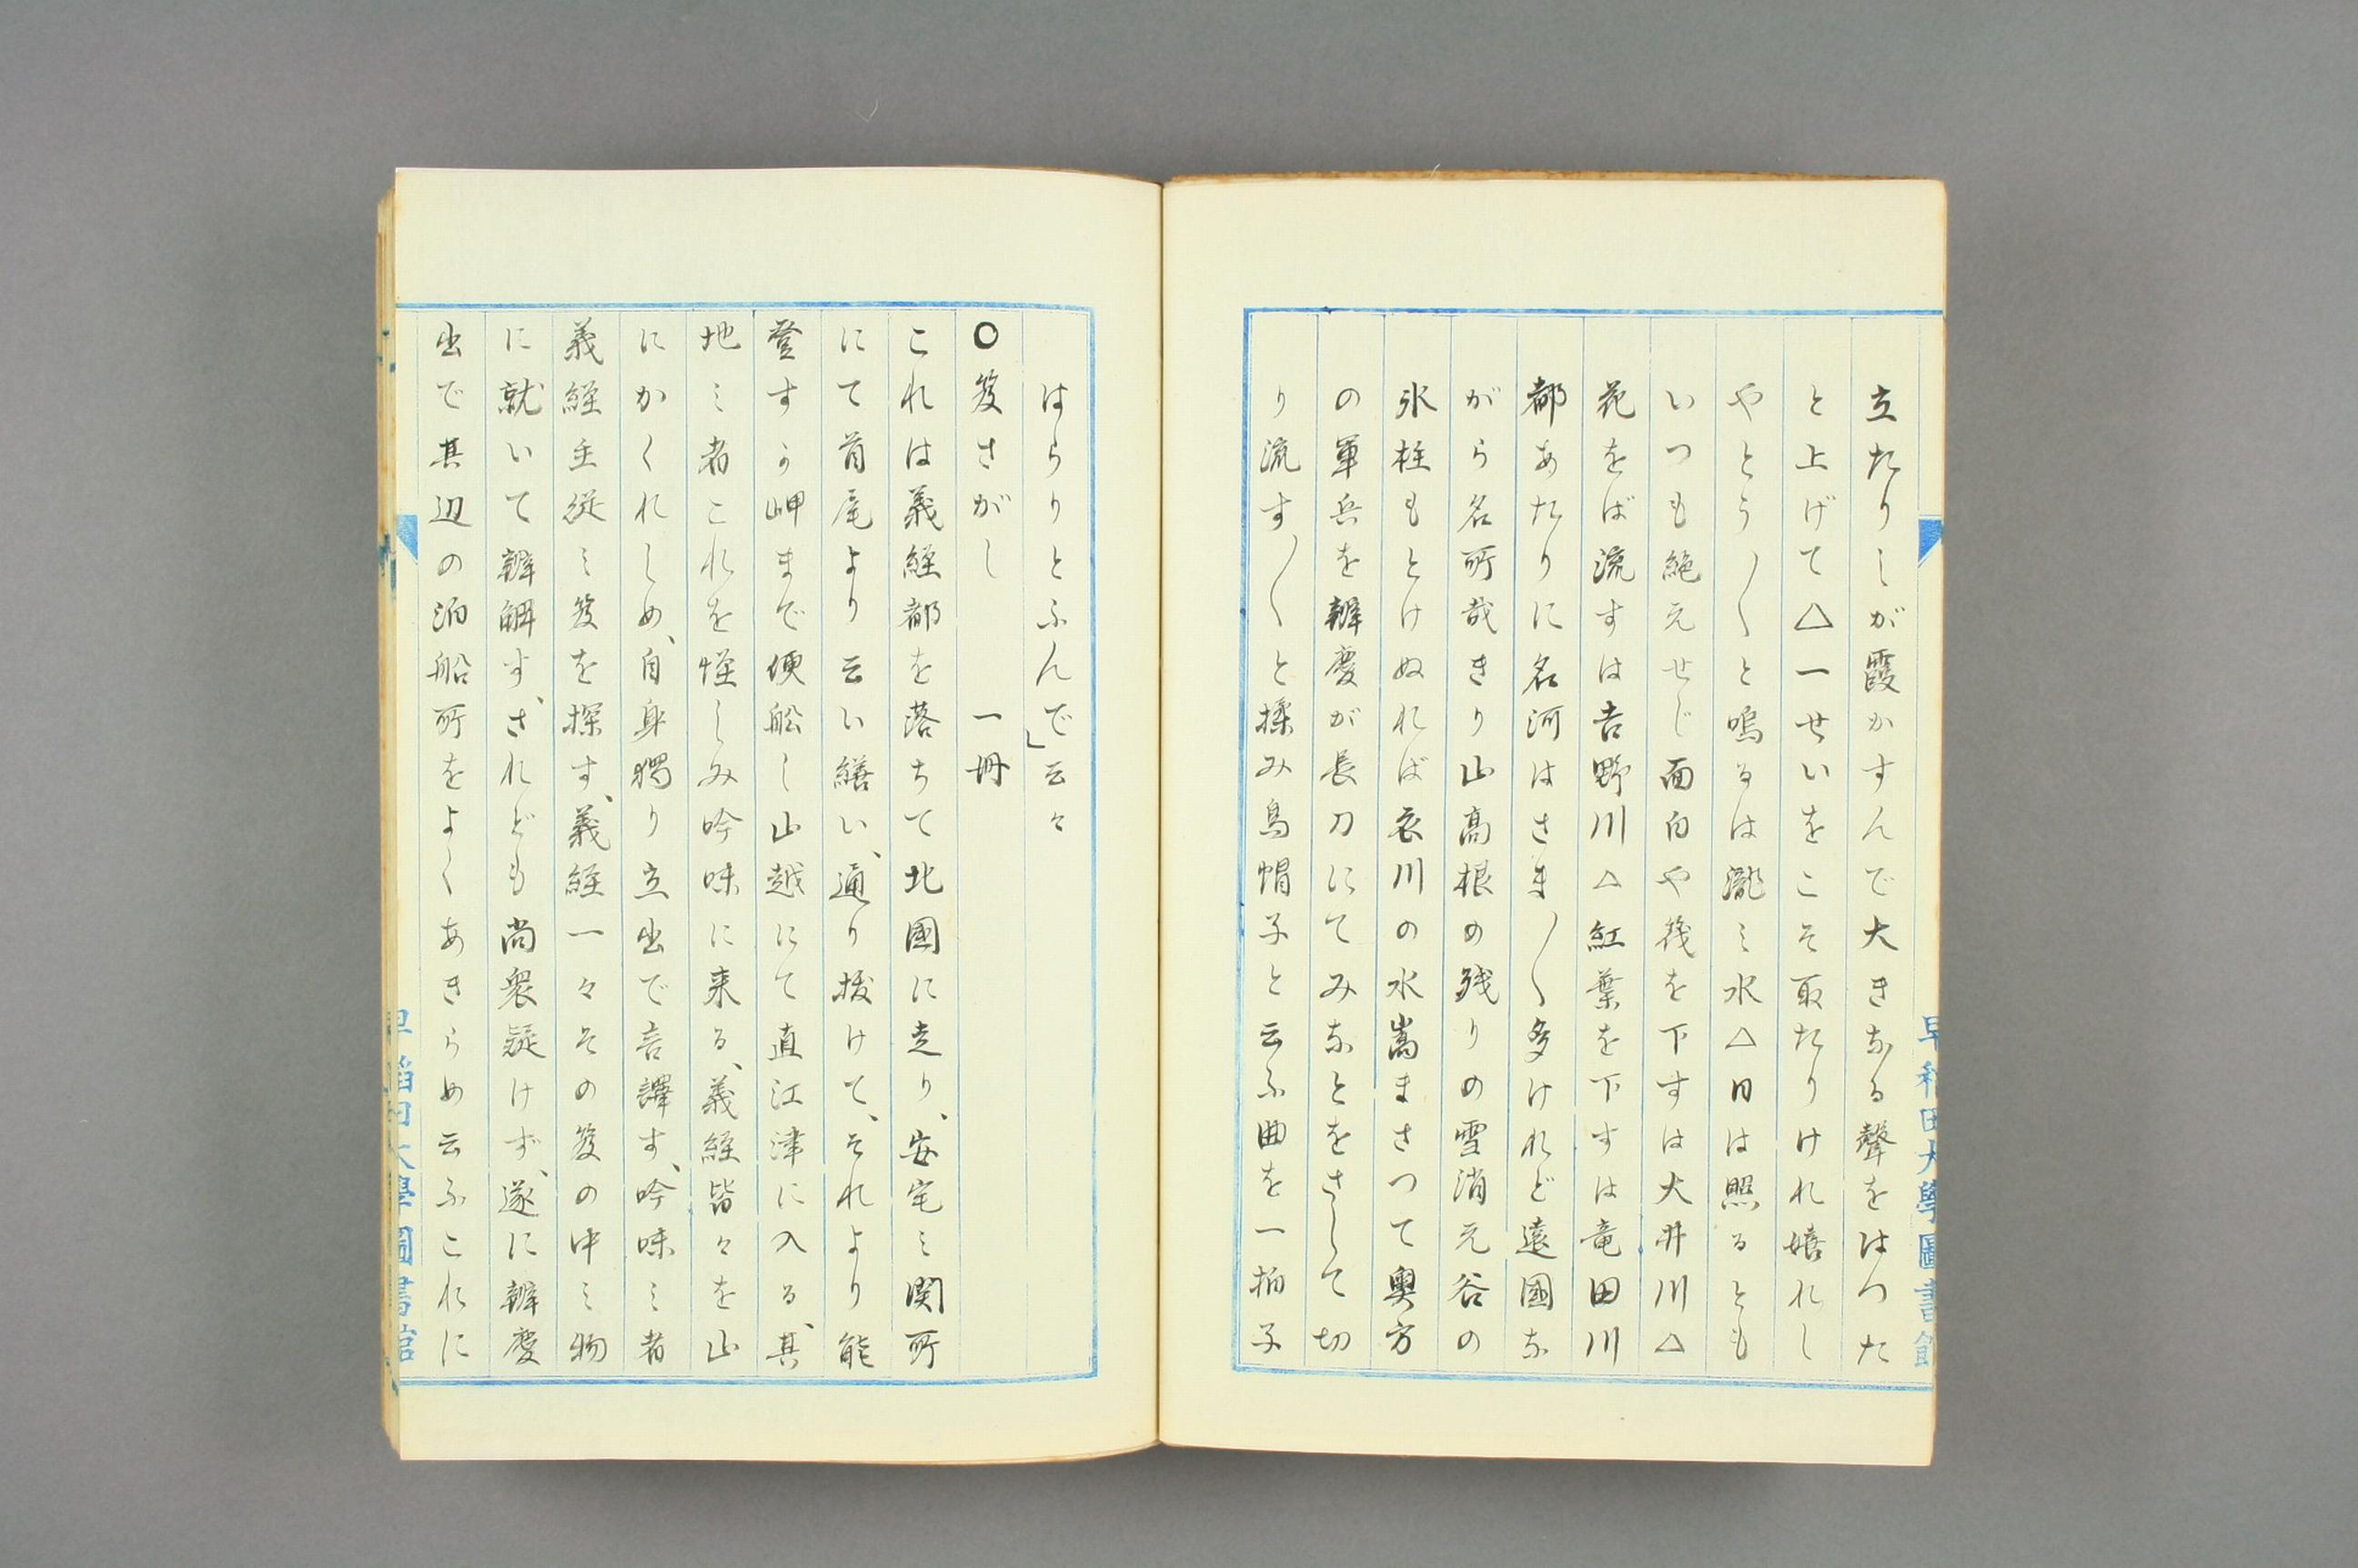 立たりしが霞かすんで大きなる聲をはつた
と上げて△一せいをこそ取たりけれ嬉れし
やとう〳〵と鳴るは瀧ミ水△日は照るとも
いつも絶えせじ面白や筏を下すは大井川△
花をば流すは吉野川△紅葉を下すは竜田川
都あたりに名河はさま〴〵多けれど遠國な
がら名所哉きり山高根の残りの雪消え谷の
氷柱もとけぬれば衣川の水嵩まさつて奥方
の軍兵を辨慶が長刀にてみなとをさして切
り流す〳〵と揉み烏帽子と云ふ曲を一拍子
はらりとふんで」云々
○笈さがし　　一冊
これは義経都を落ちて北國に走り、安宅ミ関所
にて首尾より云い繕い、通り抜けて、それより能
登すゞ岬まで便船し山越にて直江津に入る、其
地ミ者これを怪しみ吟味に来る、義経皆々を山
にかくれしめ、自身獨り立出で言譯す、吟味ミ者
義経主従ミ笈を探す、義経一々その笈の中ミ物
に就いて辨解す、されども尚衆疑けず、遂に辨慶
出で其辺の泊船所をよくあきらめ云ふこれに
早稲田大學圖書館
早稲田大學圖書館